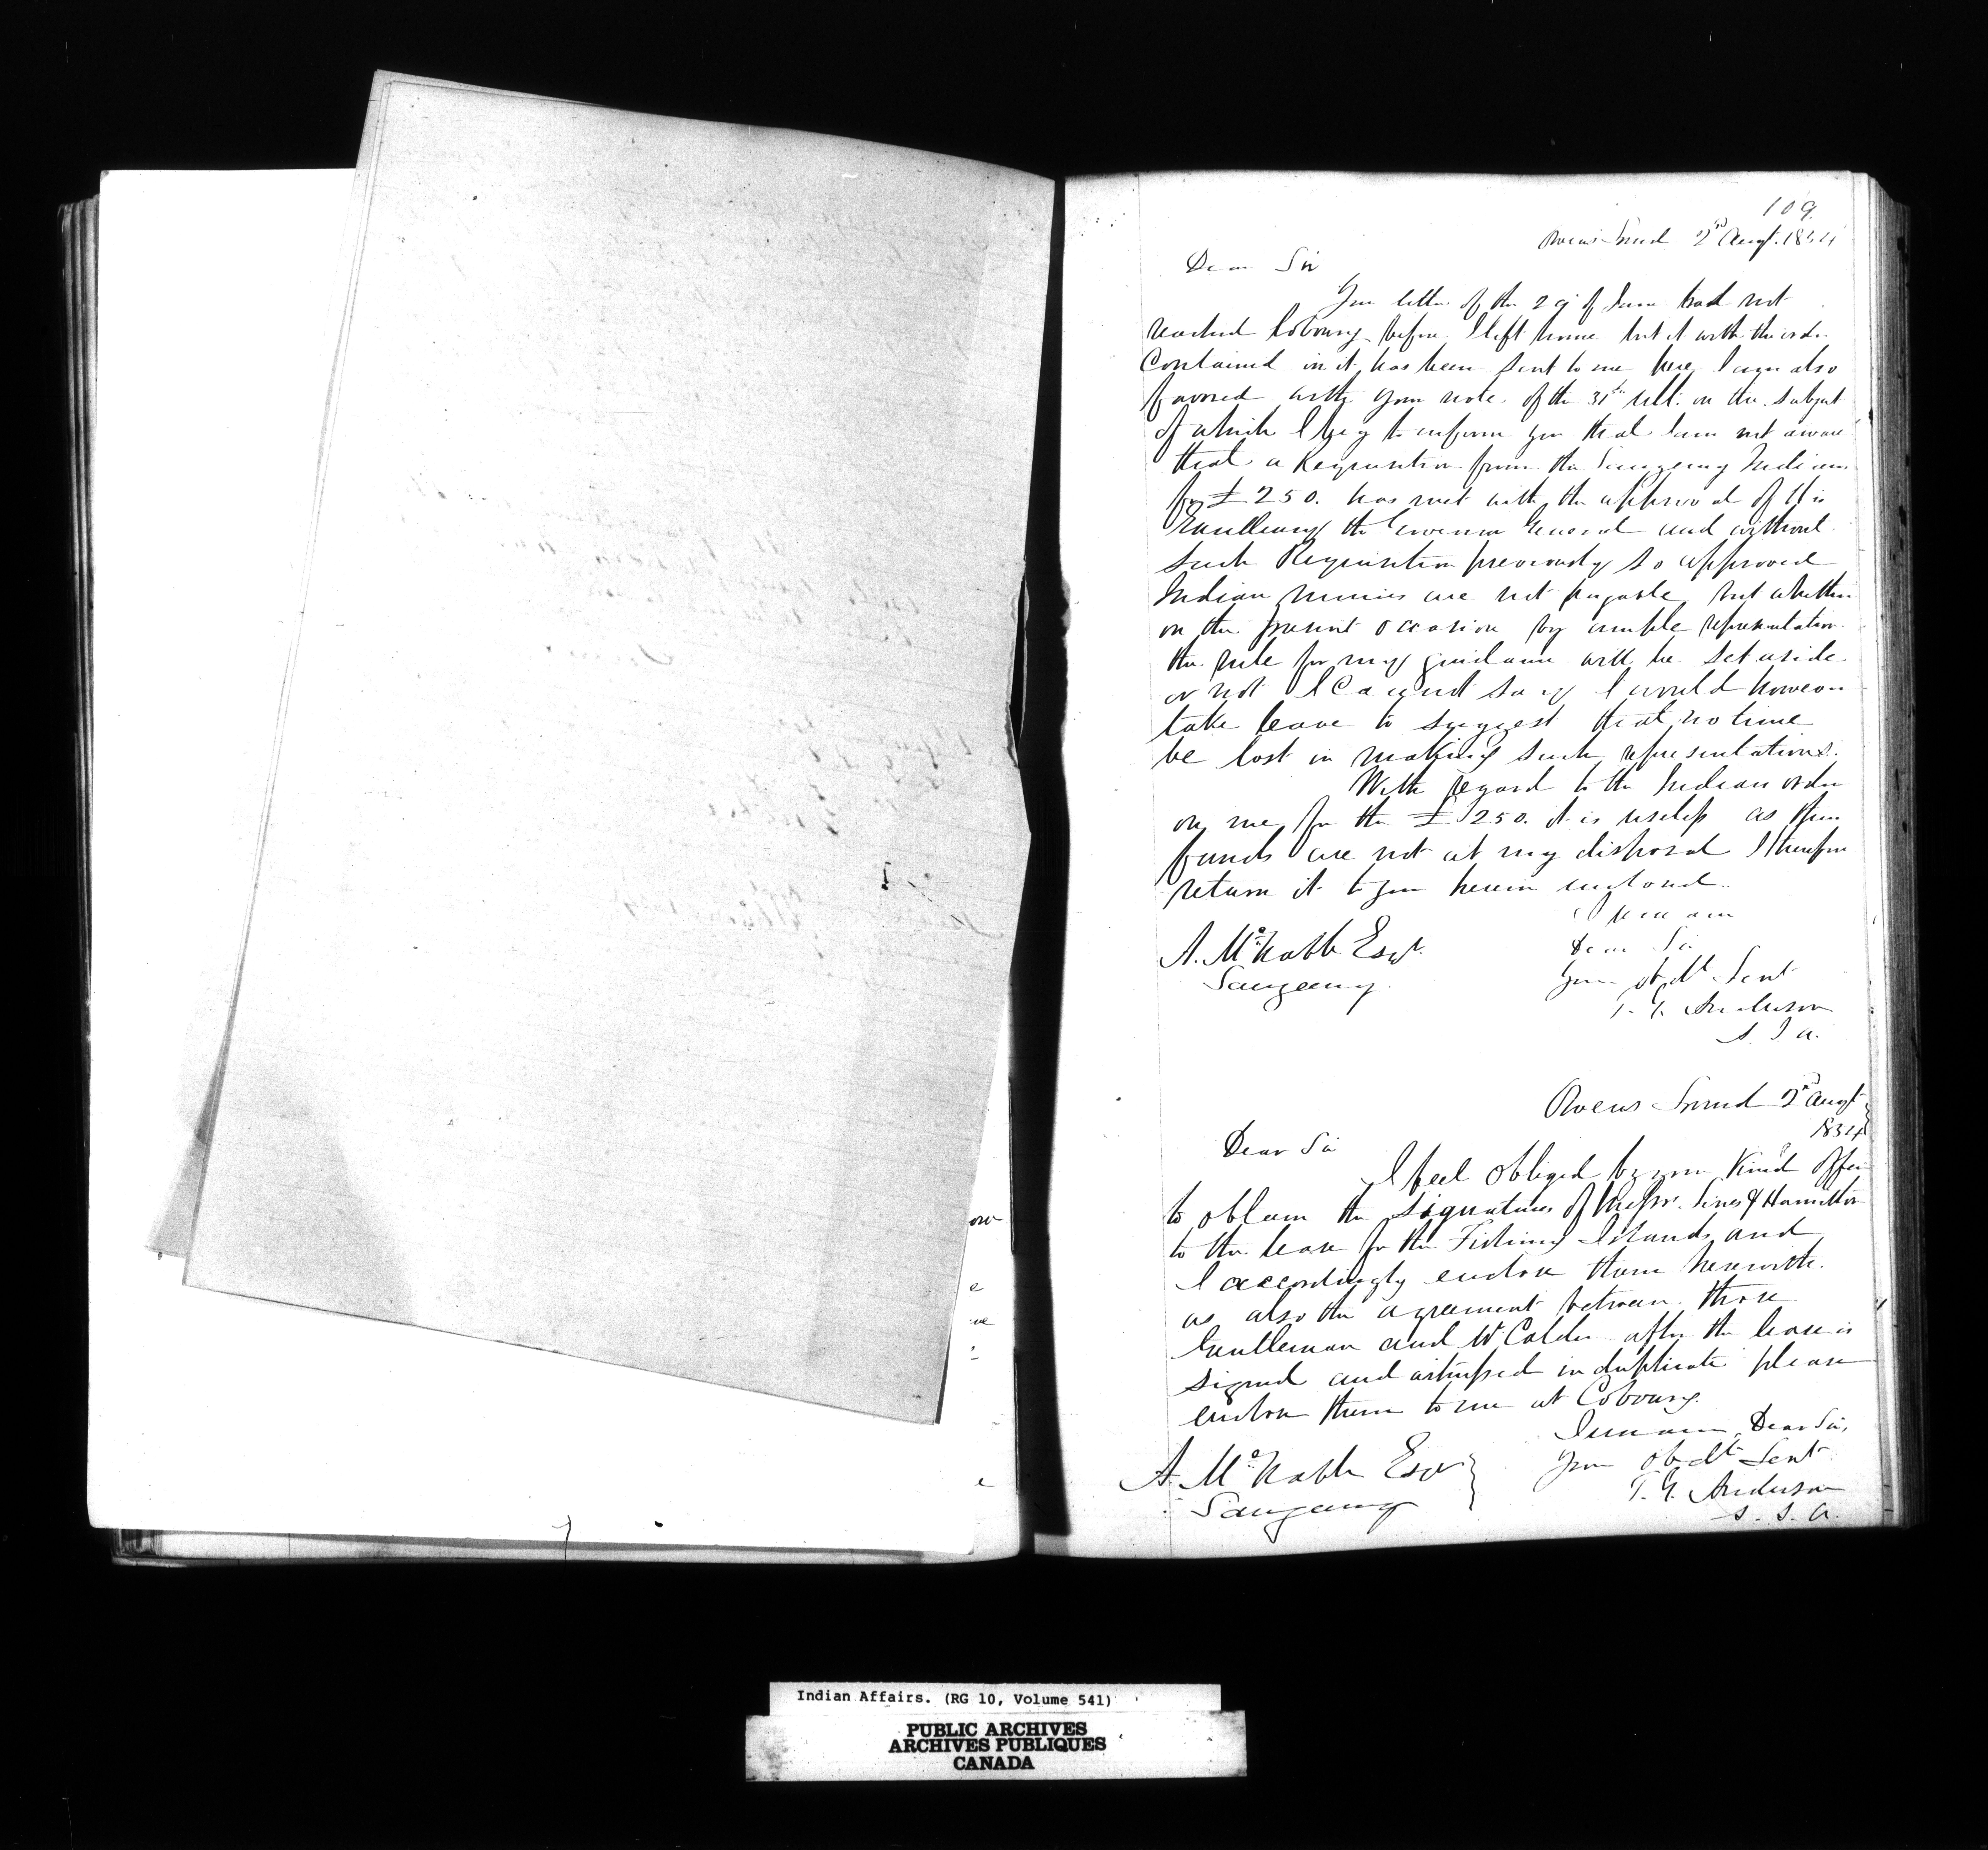 109
Owens Sound 2nd Augt. 1854
Dear Sir
Your letter of the 29 of June had not
reached Cobourg before I left home but it with the order
contained in it has been sent to me here I am also
favored with your note of the 31st ult. on the subject
of which I beg to inform you that I am not aware
that a Requisition from the Saugeeng Indians
for £250. has met with the approval of His
Excellency the Governor General and without
such Requisition previously so approved
Indian monies are not payable, but whether
on the present occasion by ample representation
the rule for my guidance will be set aside
or not I cannot say I would however
take leave to suggest that no time
be lost in making such representations.
With regard to the Indian order
on me for the £250. it is useless as these
funds are not at my disposal I therefore
return it to you herein enclosed.
I remain
Dear Sir
Your obdt Sert
T. G. Anderson
S. I. A.
A. McNabb Esqr.
Saugeeng.
Owens Sound 2nd Augt
1854
Dear Sir
I feel obliged by your kind offer
to obtain the signatures of Messrs. & Hamilton
to the lease for the Fishing Islands and
I accordingly enclose them herewith.
as also the agreement between those
Gentleman and W Calder after the lease is
signed and witnessed in duplicate please
enclose them to me at Cobourg.
I remain, Dear Sir,
Your obdt Sert
T. G. Anderson
S. I. A.
A. McNabb Esqr
Saugeeng
ow
e
ve
e
Indian Affairs. (RG 10, Volume 541)
PUBLIC ARCHIVES
ARCHIVES PUBLIQUES
CANADA